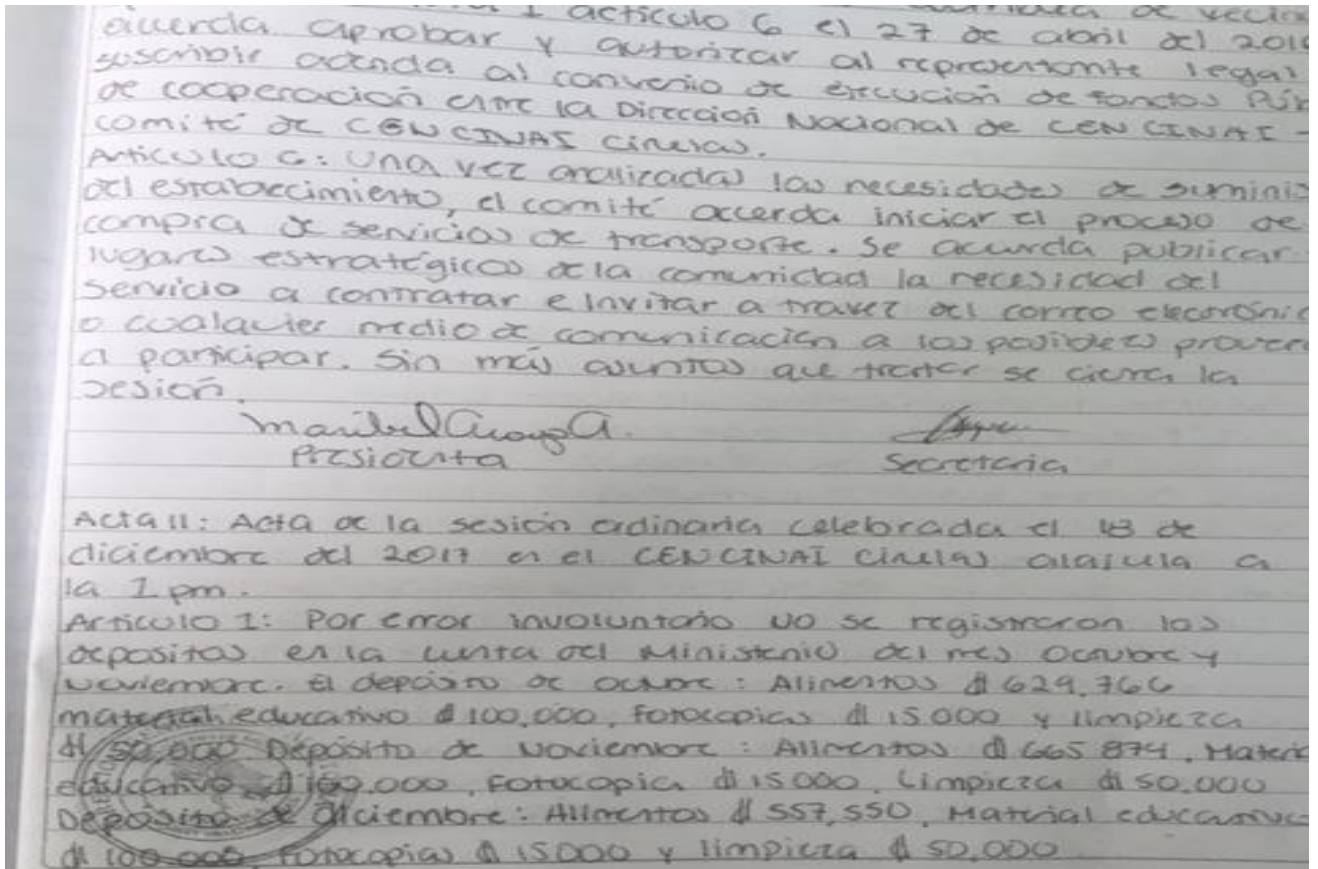 1 acticulo 6 el 27 de abril del 201
acuerda aprobar y autorizar al representante legal
suscribir adenda al convenio de ejecución de fondos Púb
de cooperación entre la Dirección Nacional de CEN CINAI -
comité de CENCINAI Cirueias.
Articulo 6: Una vez analizadas las necesidades de suminis
del establecimiento, el comité acuerda iniciar el proceso de
compra de servicios de transporte. Se acuerda publicar
lugares estratégicos de la comunidad la necesidad del
servicio a contratar e invitar a travez del correo electrónic
o cualquier medio de comunicación a los posibles proveed
a participar. Sin más asuntos que tratar se cierra la
sesión.
Maribel A.
Presidenta Secretaria
Acta 11: Acta de la sesión ordinaria celebrada el de
diciembre del 2017 en el CENCINAI Ciruelas alajuela a
la 1 pm.
Articulo 1: Por error involuntario no se registraron los
depositos en la cuenta del Ministerio del mes Octubre y
Noviembre. El deposito de octubre: Alimentos ₡ 629.766
material educativo ₡ 100.000, fotocopias ₡ 15000 y limpieza
₡ 50.000 Déposito de Noviembre: Alimentos ₡ 665 874, Materia
educativo ₡ 100.000, Fotocopia ₡ 15000, Limpieza ₡ 50.000
Déposito de Diciembre: Alimentos ₡ 557,550, Material educativo
₡ 100 000 fotocopias ₡ 15000 y limpieza ₡ 50.000